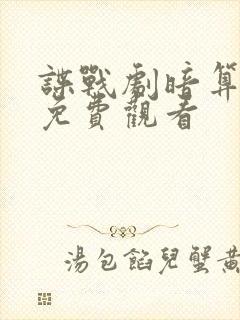 諜戰劇暗算
免費觀看
湯包餡兒蟹黃